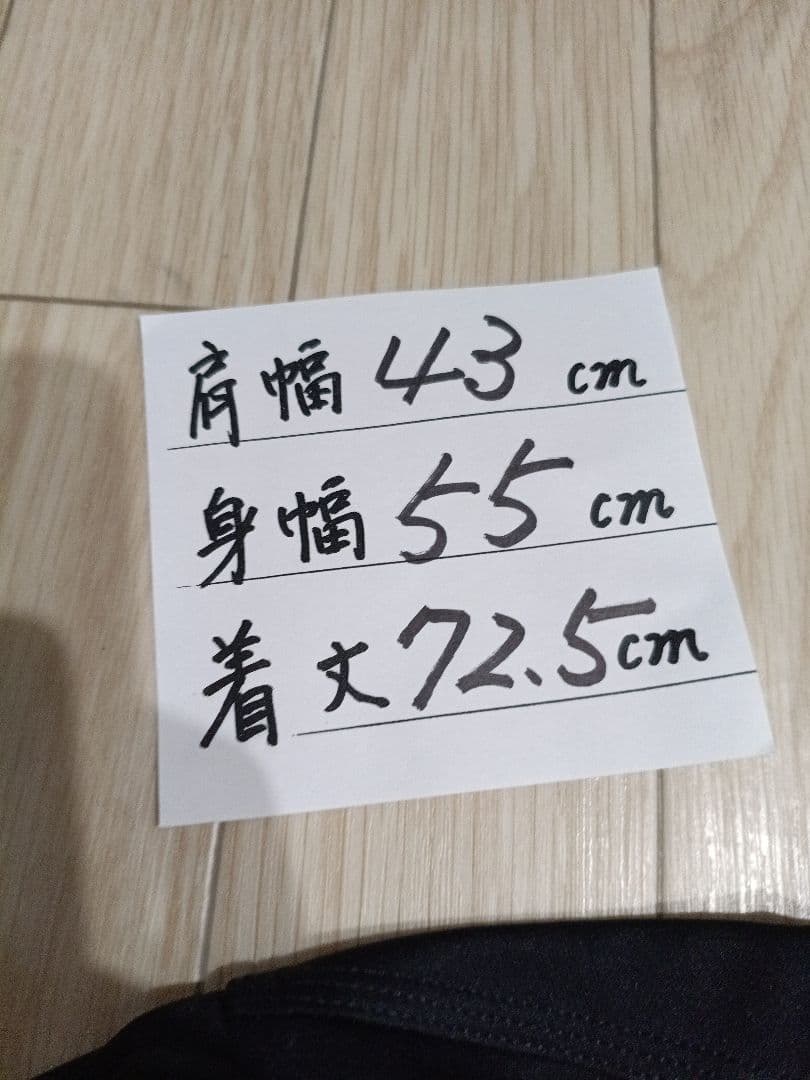 肩幅 43 cm
身幅 55 cm
着丈 72.5cm